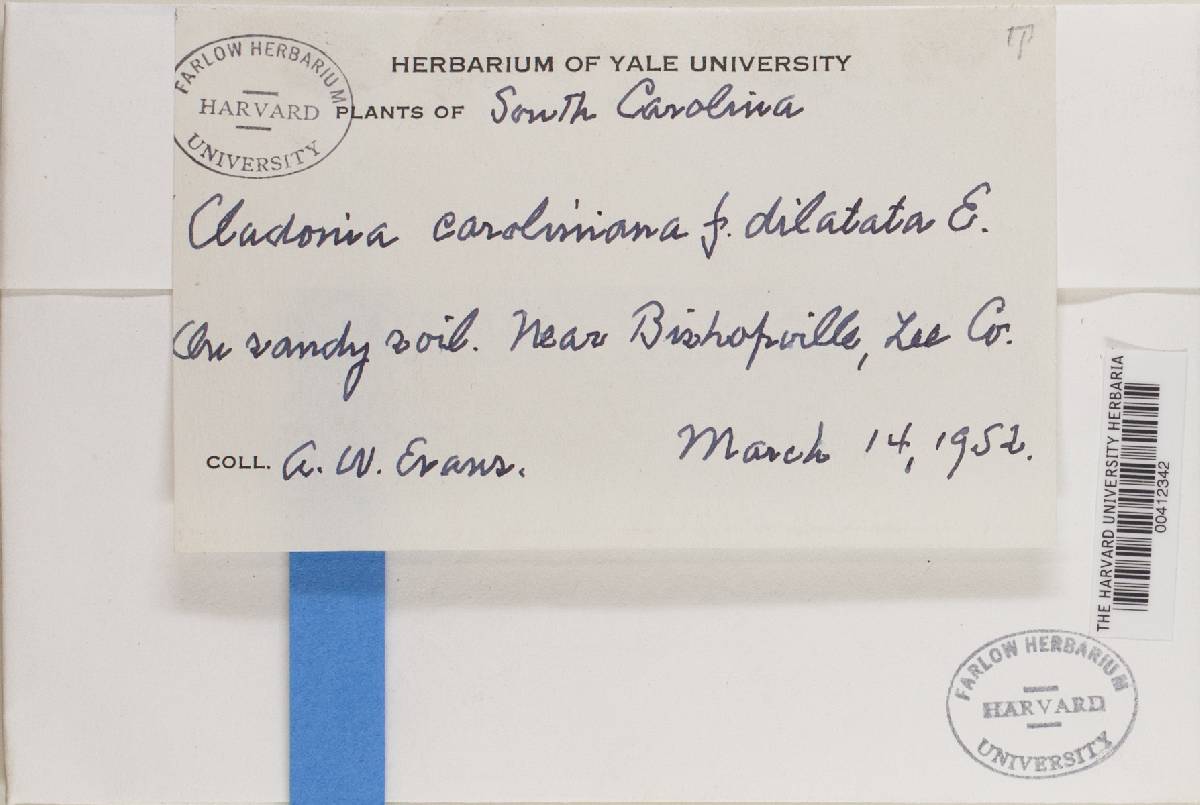 HERBARIUM OF YALE UNIVERSITY
PLANTS OF South Carolina
FARLOW HERBARIUM
HARVARD
UNIVERSITY
Cladonia caroliniana f. dilatata E.
On sandy soil. Near Bishopville, Lee Co.
COLL. A. W. Evans. March 14, 1952.
THE HARVARD UNIVERSITY HERBARIA
00412342
FARLOW HERBARIUM
HARVARD
UNIVERSITY